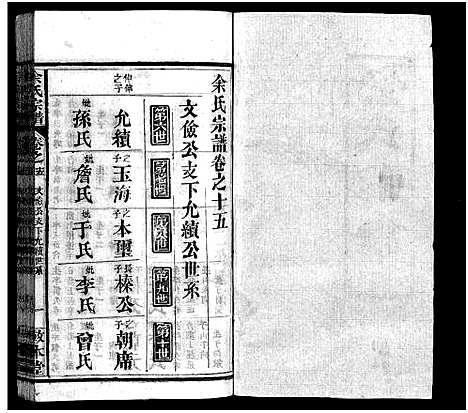 余氏宗譜卷之十五
文儉公支下允績公世系
第六世
第七世
第八世
第九世
第十世
仲偉之子
允績
妣孫氏
之子玉海
妣詹氏
之子本璽
妣于氏
長子榛公
妣李氏
之子朝席
妣曾氏
余氏宗譜
卷之十五
文儉公支下允績世系
一
敦本堂